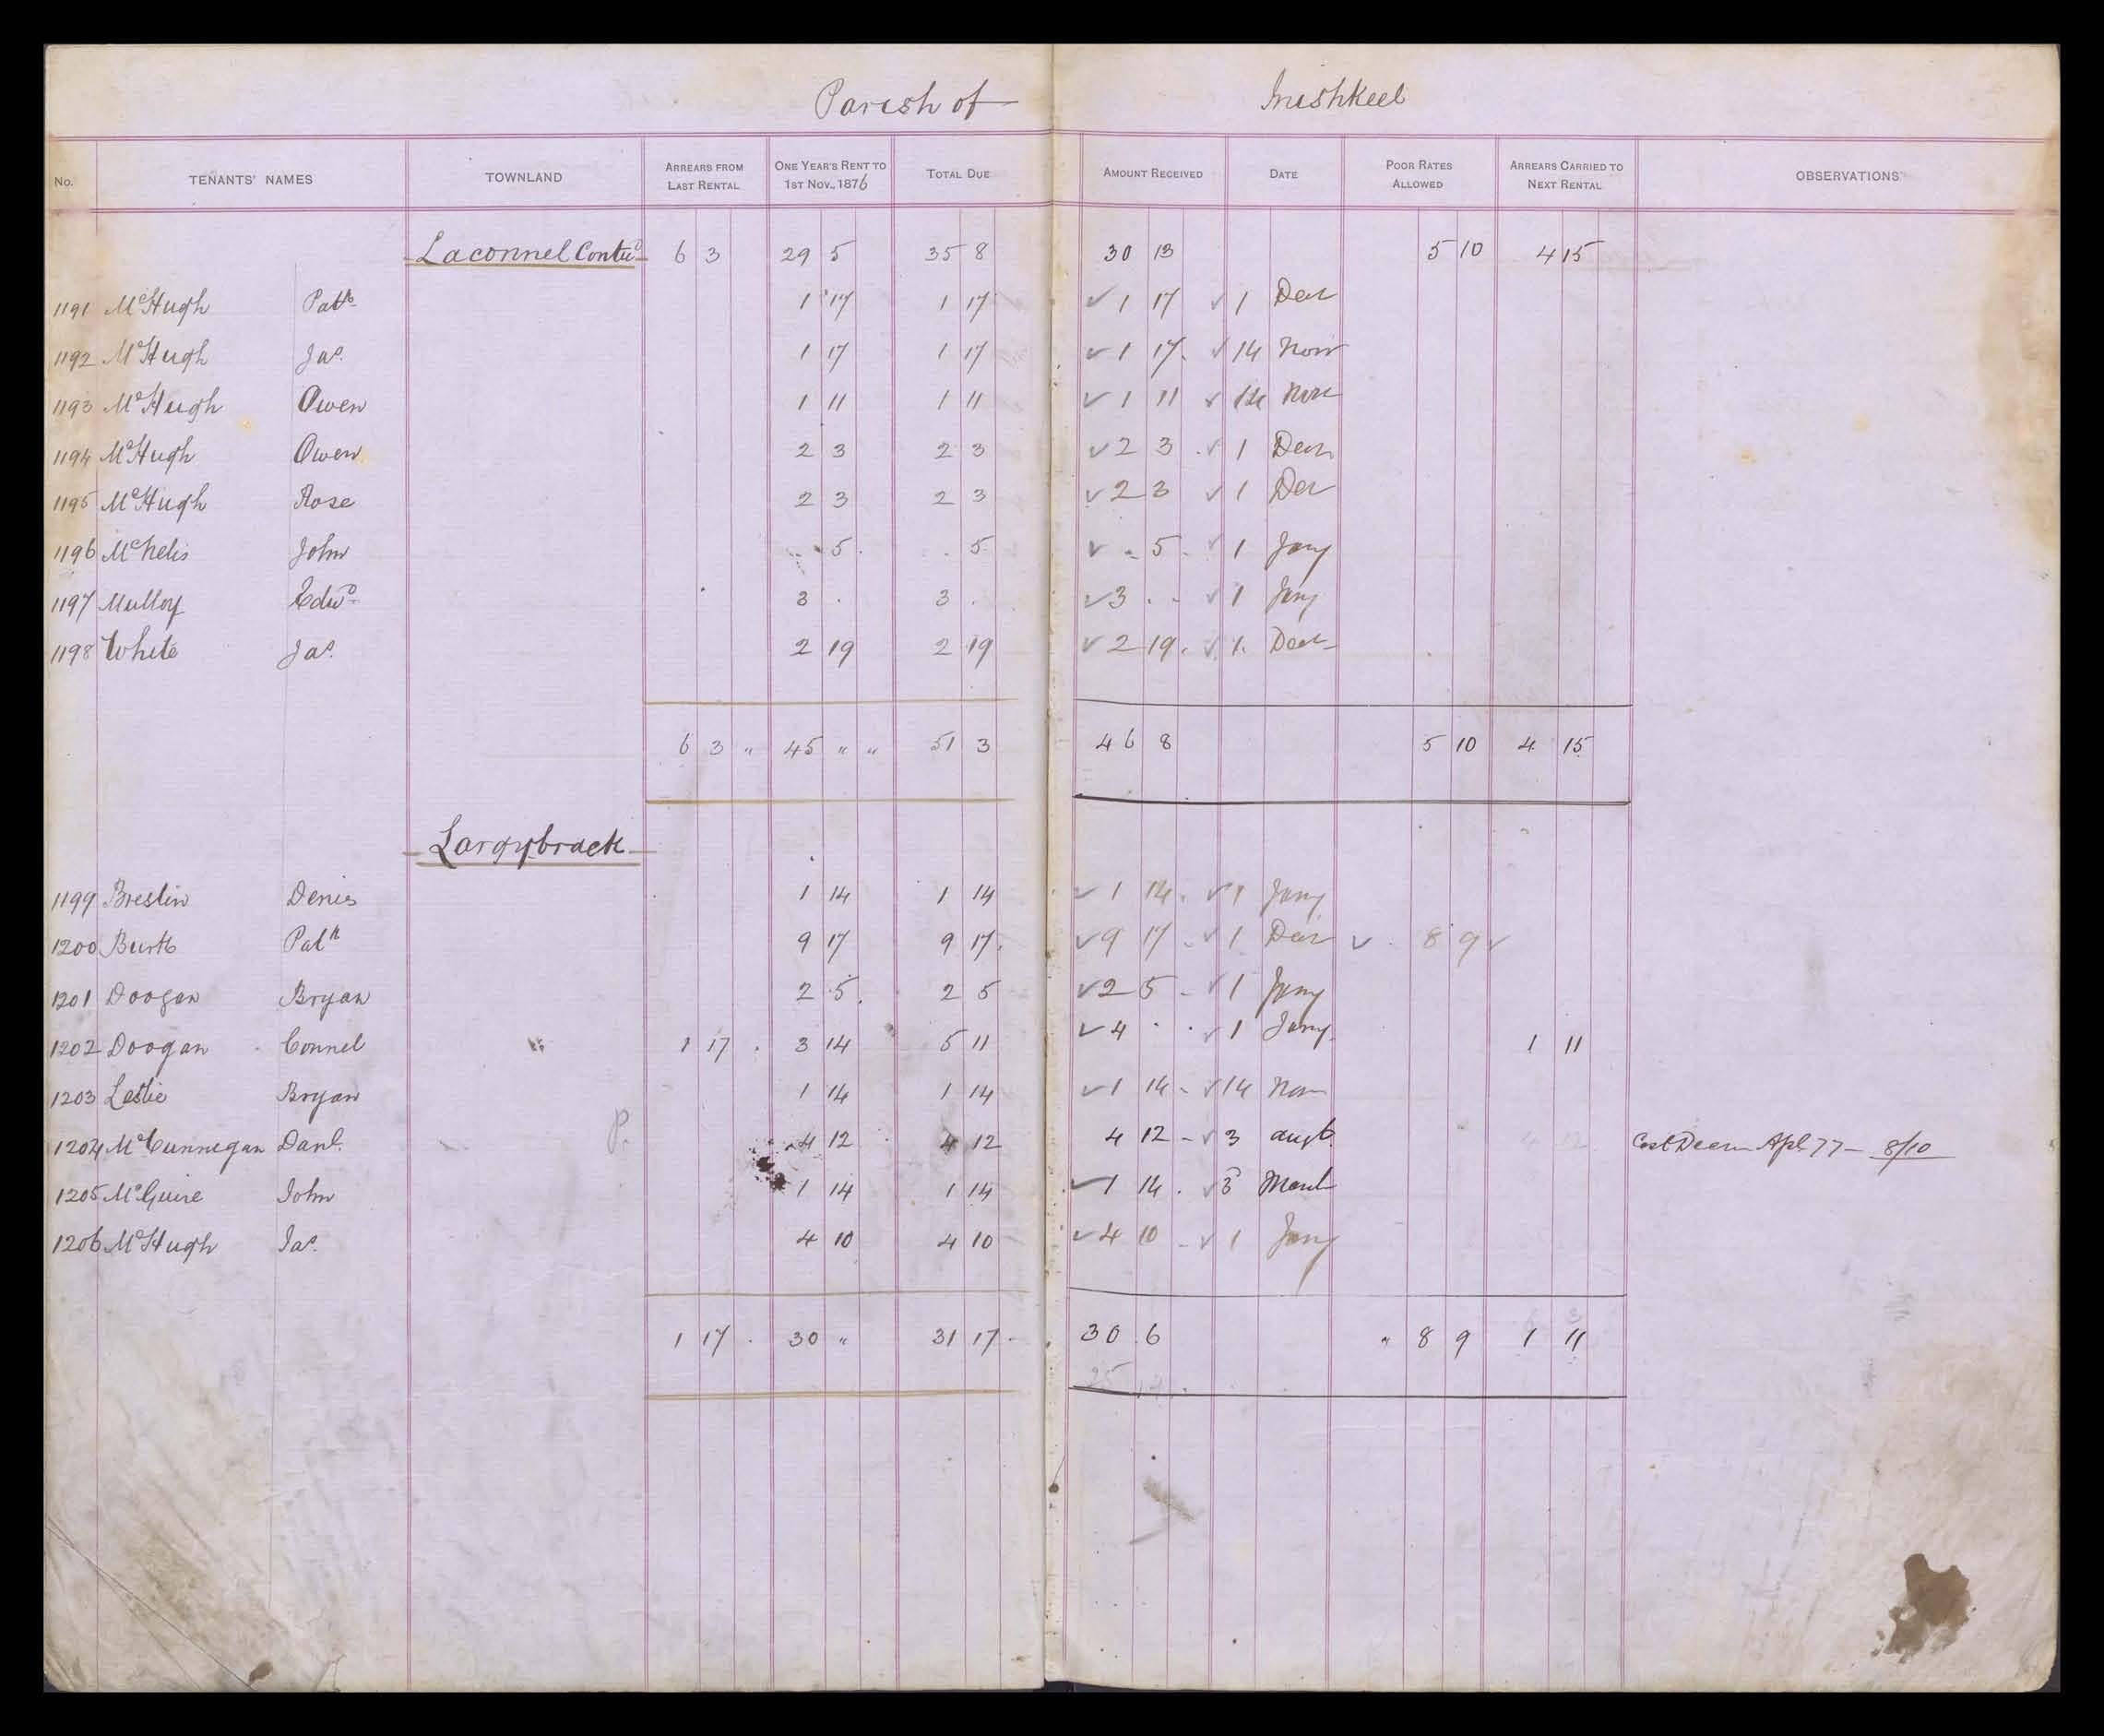 Parish of Inishkeel
No. TENANTS' NAMES TOWNLAND ARREARS FROM LAST RENTAL ONE YEAR'S RENT TO 1ST NOV., 1876 TOTAL DUE AMOUNT RECEIVED DATE POOR RATES ALLOWED ARREARS CARRIED TO NEXT RENTAL OBSERVATIONS
Laconnel Contd 6 3 29 5 35 8 30 13 5 10 4 15
1191 McHugh Patk 1 17 1 17 ✓ 1 17 ✓ 1 Decr
1192 McHugh Jas. 1 17 1 17 ✓ 1 17 . ✓ 14 Novr
1193 McHugh Owen 1 11 1 11 ✓ 1 11 ✓ 14 Novr
1194 McHugh Owen 2 3 2 3 ✓ 2 3 . ✓ 1 Decr
1195 McHugh Rose 2 3 2 3 ✓ 2 3 ✓ 1 Decr
1196 McNelis John . 5 . . 5 ✓ . 5 - ✓ 1 Jany
1197 Mulloy Edwd 3 . 3 . ✓ 3 . - ✓ 1 Jany
1198 White Jas. 2 19 2 19 ✓ 2 19 . ✓ 1 Decr
6 3 " 45 " " 51 3 46 8 5 10 4 15
Largybrack
1199 Breslin Denis 1 14 1 14 ✓ 1 14 . ✓ 1 Jany
1200 Burk Patk 9 17 9 17 . ✓ 9 17 - ✓ 1 Decr ✓ . 8 9 ✓
1201 Doogan Bryan 2 5 . 2 5 ✓ 2 5 - ✓ 1 Jany
1202 Doogan Connel 1 17 . 3 14 5 11 ✓ 4 . . ✓ 1 Jany 1 11
1203 Leslie Bryan 1 14 1 14 ✓ 1 14 - ✓ 14 Nov
1204 McCunnegan Danl. P. 4 12 4 12 4 12 - ✓ 3 augt. Cost Decree Apl 77 — 8/10
1205 McGuire John 1 14 1 14 ✓ 1 14 . ✓ 3 March
1206 McHugh Jas. 4 10 4 10 ✓ 4 10 - ✓ 1 Jany
1 17 . 30 " 31 17 - 30 6 " 8 9 1 11
25